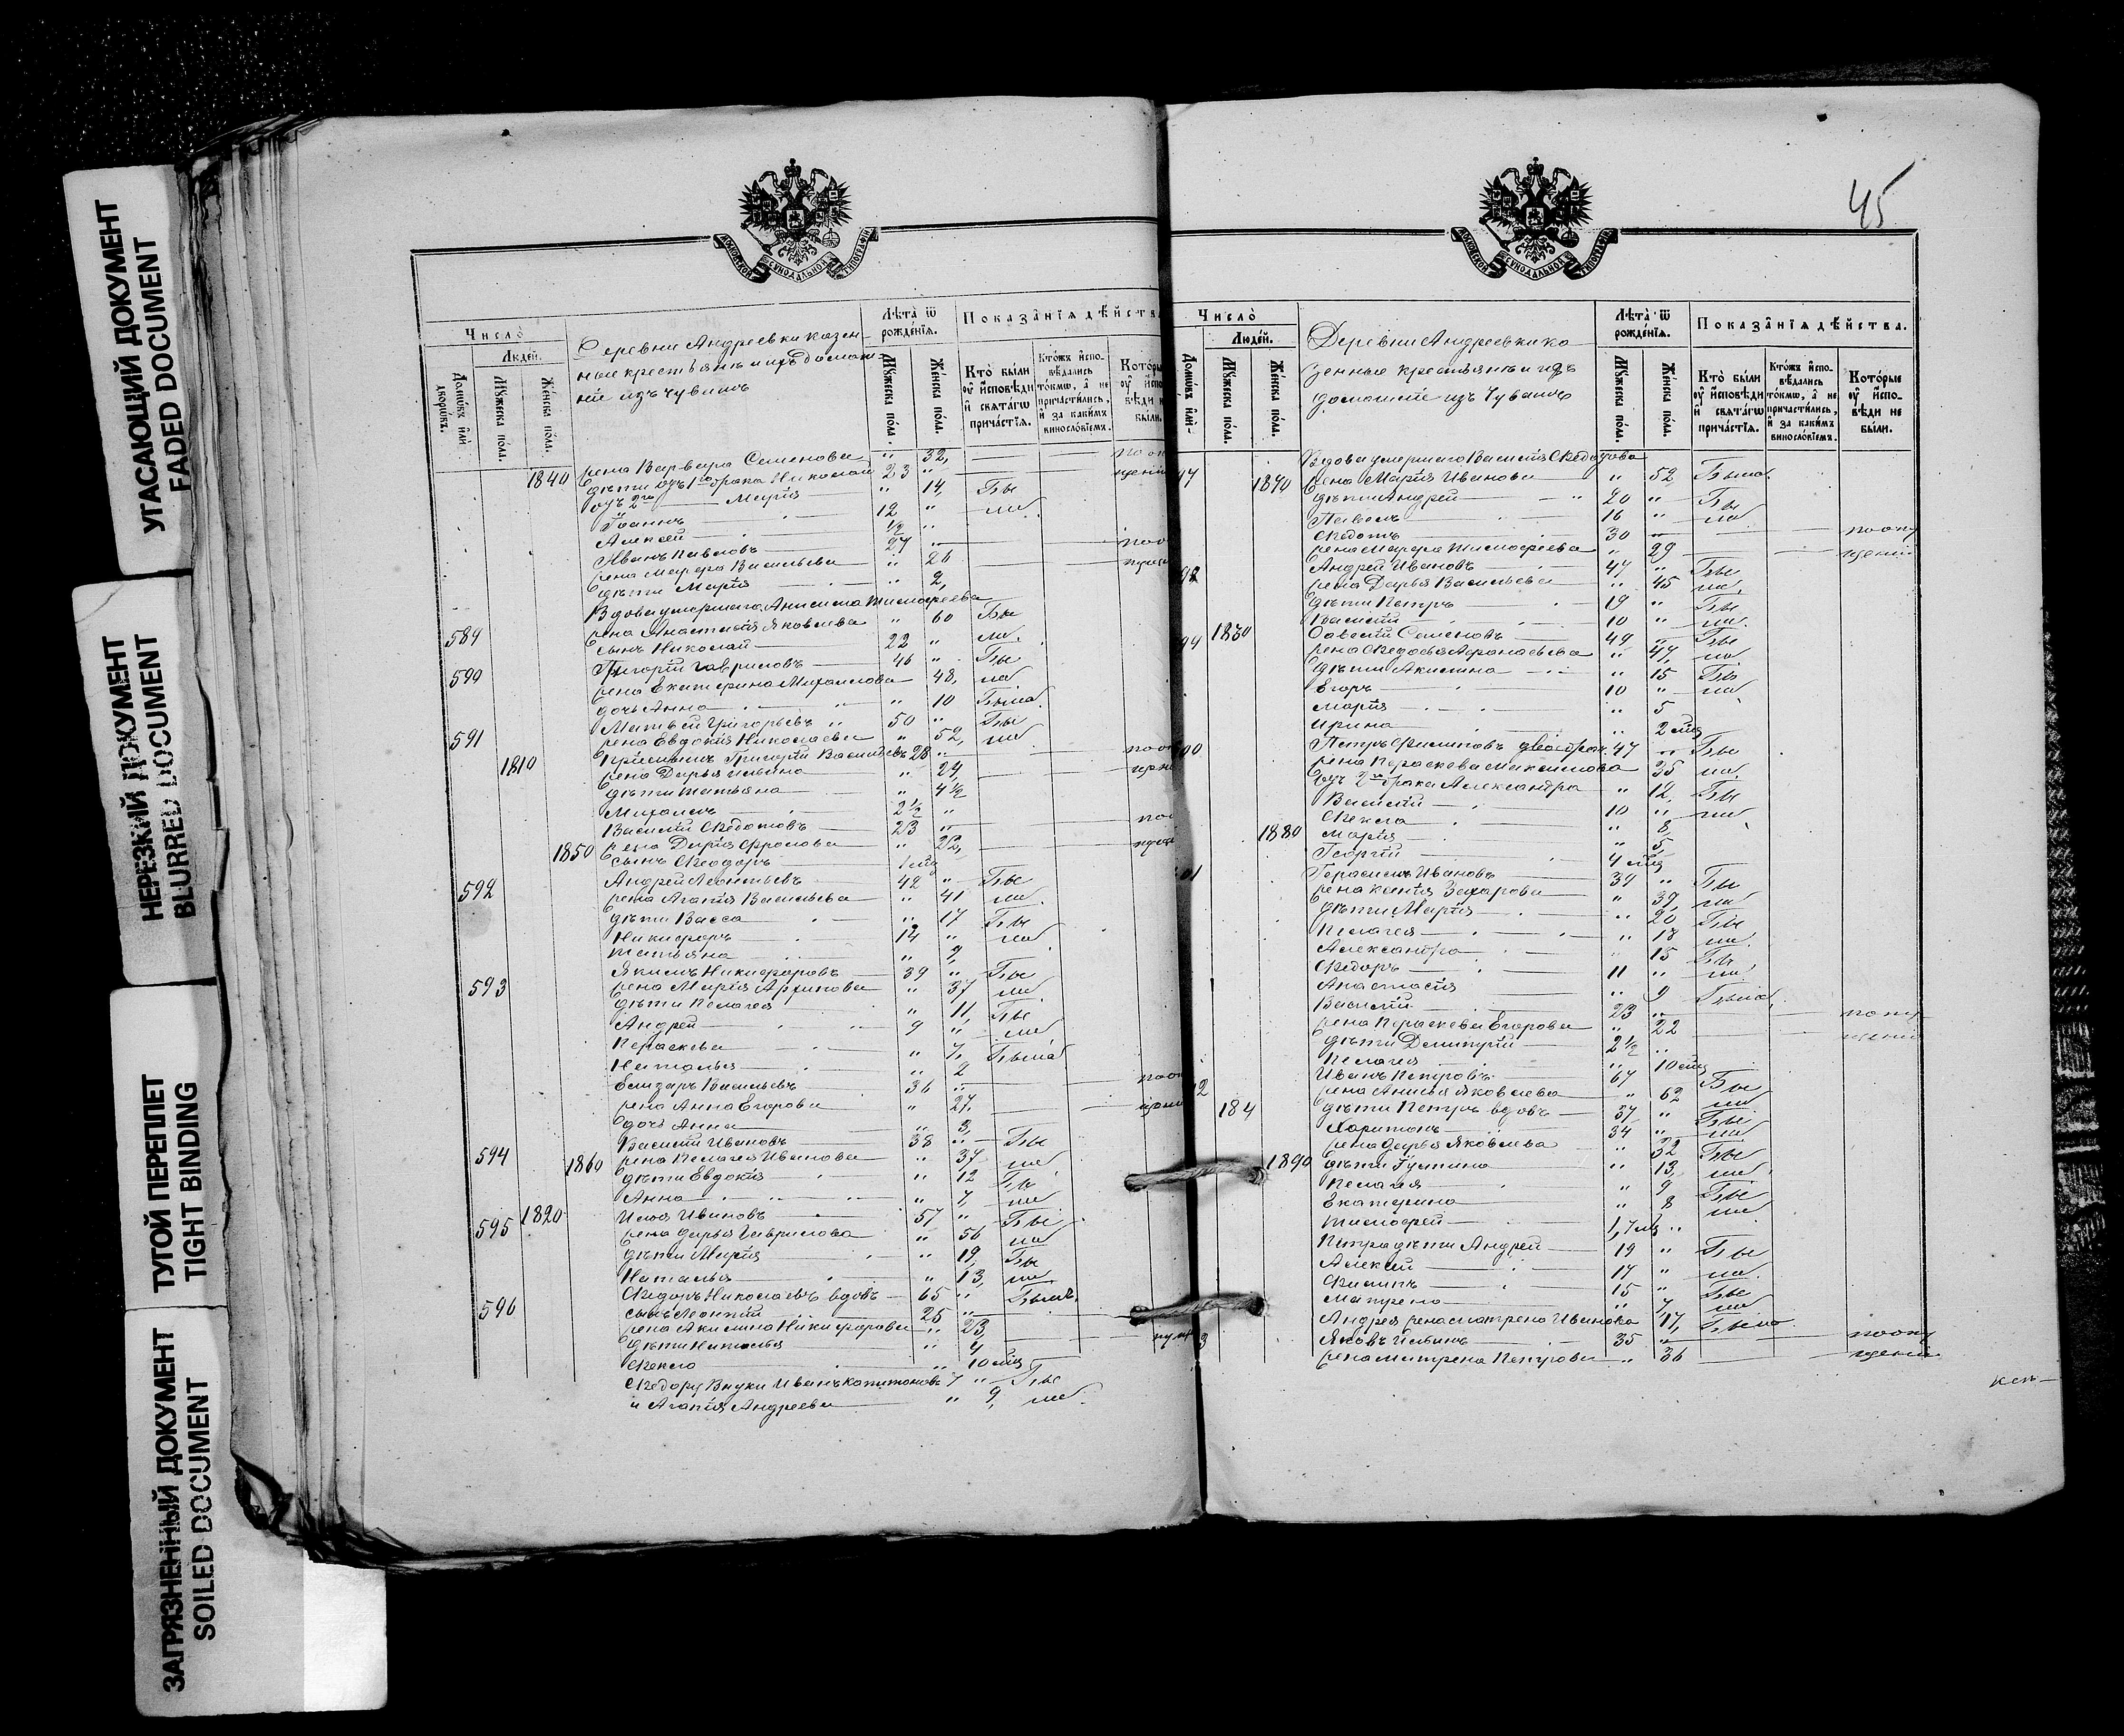 УГАСАЮЩИЙ ДОКУМЕНТ
FADED DOCUMENT
НЕРЕЗКИЙ ДОКУМЕНТ
BLURRED DOCUMENT
ТУГОЙ ПЕРЕПЛЕТ
TIGHT BINDING
ЗАГРЯЗНЕННЫЙ ДОКУМЕНТ
SOILED DOCUMENT
МОСКОВСКОЙ СѴНОДАЛЬНОЙ ТИПОГРАФІИ
Число̀
Людей.
Домѡвъ и҆лѝ дворѡвъ.
Мꙋжеска по́ла.
Же́нска по́ла.
Деревни Андреевки казен-
ные крестьянъ и ихъ домаш-
ніе изъ чувашъ
Лѣта̀ ѿ рожде́нїѧ.
Мꙋжеска по́ла.
Же́нска по́ла.
Показа̑нїѧ дѣ́йства
Кто̀ были ᲂу҆ и҆сповѣди и҆ свѧта́гѡ прича́стїѧ.
Кто́жъ и҆спо-вѣдались то́кмѡ, а҆ не причасти́лись, и҆ за каки́мъ винословїемъ.
жена Варвара Семенова " 32,
1840 дѣти отъ 1го брака Николай 23 "
отъ 2го — Марія " 14, Бы
Іоаннъ 12 " ли
Алексѣй ½ "
Иванъ Павловъ 27 "
жена Марфа Васильева " 26
дѣти Марія " 2,
Вдова умершаго Анисима Тимофеева
589 жена Анастасія Яковлева " 60 Бы
сынъ Николай 22 " ли
590 Григорій Гавриловъ 46 " Бы
жена Екатерина Михайлова 48, ли
дочь Анна " 10 Была
591 Матвѣй Григорьевъ 50 " Бы
жена Евдокія Николаева " 52, ли
1810 Пріемышъ Григорій Васильевъ 28 "
жена Дарья Ильина " 24,
дѣти Татьяна " 4½
Михаилъ 2½ "
Василій Ѳедотовъ 23 "
1850 жена Дарія Фролова " 22,
сынъ Ѳеодоръ
592 Андрей Леонтьевъ 42 " Бы
жена Агапія Васильева " 41 ли
дѣти Васса " 17 Бы
Никифоръ 14 " ли
Татьяна " 2,
593 Якимъ Никифоровъ 39 " Бы
жена Марія Архипова " 37 ли
дѣти Пелагея " 11, Бы
Андрей 9 " ли
Параскева " 7, Была
Наталья " 2
Елизаръ Васильевъ 36 "
жена Анна Егорова " 27,
дочь Анна " 3,
594 Василій Ивановъ 38 " Бы
1860 жена Пелагея Иванова " 37 ли
дѣти Евдокія " 12 Бы
Анна " 7, ли
595 1820 Илья Ивановъ 57 " Бы
жена Дарья Гаврилова " 56 ли
дѣти Марія " 19, Бы
Наталья " 13, ли
596 Ѳедоръ Николаевъ вдовъ 65 " Былъ
сынъ Леонтій 25 "
жена Акилина Никифорова " 23,
дѣти Наталья " 4
Ѳекла " 10 мѣс
Ѳедору Внуки Иванъ Капитоновъ 7 " Бы
и Агапія Андреева " 9, ли
45
МОСКОВСКОЙ СѴНОДАЛЬНОЙ ТИПОГРАФІИ
Число̀
Людей.
Мꙋжеска по́ла.
Же́нска по́ла.
Деревни Андреевки ка
зенные крестьянъ и ихъ
домашніе изъ Чувашъ
Лѣта̀ ѿ рожде́нїѧ.
Мꙋжеска по́ла.
Же́нска по́ла.
Показа̑нїѧ дѣ́йства.
Кто̀ были ᲂу҆ и҆сповѣди и҆ свѧта́гѡ прича́стїѧ.
Кто́жъ и҆спо-вѣдались то́кмѡ, а҆ не причасти́лись, и҆ за каки́мъ винословїемъ.
Кото́рые ᲂу҆ и҆спо-вѣди не были.
Вдова умершаго Василія Ѳедотова
1870 жена Марія Иванова " 52 Была
дѣти Андрей 20 " Бы
Павелъ 16 " ли
Ѳедотъ 30 " по опу
жена Марфа Тимофеева " 29 щенію
Андрей Ивановъ 47 " Бы
жена Дарья Васильева " 45 ли
дѣти Петръ 19 " Бы
Василій 10 " ли
1830 Савелій Семеновъ 49 " Бы
жена Ѳедосья Афанасьева " 47, ли
дѣти Акилина " 15 Бы
Егоръ 10 " ли
Марія " 5
Ирина " 2 мѣс
Петръ Филиповъ двоебрач. 47 " Бы
жена Параскева Максимова " 35 ли
отъ 2го брака Александра " 12, Бы
Василій 10 " ли
Ѳекла " 8,
1880 Марія " 5,
Георгій 4 мѣс
Герасимъ Ивановъ 39 " Бы
жена Ксенія Захарова " 39, ли
дѣти Марія " 20 Бы
Пелагея " 18 ли
Александра " 15 Бы
Ѳедоръ 11 " ли
Анастасія " 9 Была
Василій 23 " по опу
жена Параскева Егорова " 22 щенію
дѣти Димитрій 2½ "
Пелагея " 10 мѣс
Иванъ Петровъ 67 " Бы
жена Анисья Яковлева " 62 ли
184 дѣти Петръ вдовъ 37 " Бы
Харитонъ 34 " ли
жена Дарья Яковлева " 32 Бы
1890 дѣти Густина " 13, ли
Пелагея " 9 Бы
Екатерина " 8 ли
Тимофей "
Петра дѣти Андрей 19 " Бы
Алексѣй 17 " ли
Филипъ 15 " Бы
Матрена " 7, ли
Андрея жена Матрена Иванова 17, Была
Яковъ Ильинъ 35 " по опу
жена Матрена Петрова " 36 щенію